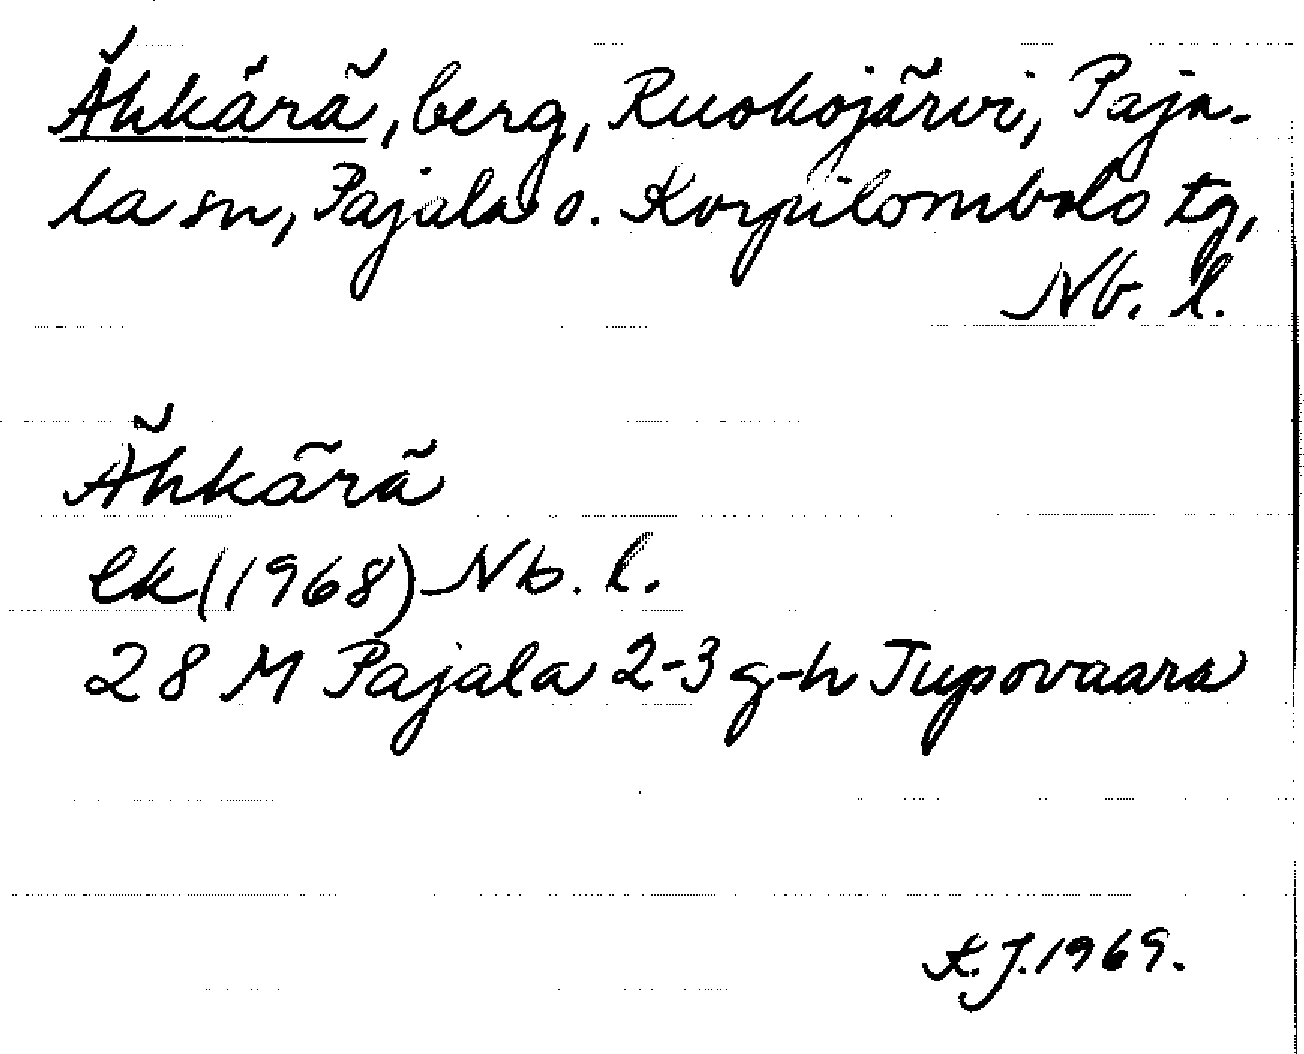 Ähkärä, berg, Ruokojärvi, Paja-
la sn, Pajala o. Korpilombolo tg,
Nb. l.
Ähkärä
ek (1968) Nb. l.
28 M Pajala 2-3 g-h Jupovaara
K.J. 1969.